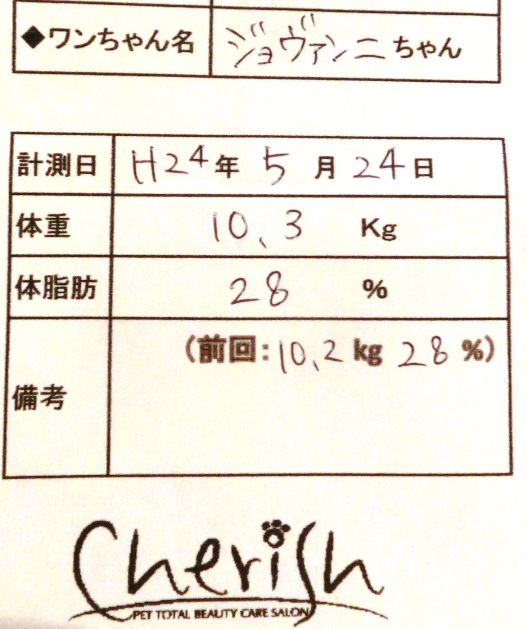 ◆ワンちゃん名 ジョヴァンニちゃん
計測日 H24年 5月 24日
体重 10.3 Kg
体脂肪 28 %
備考 (前回:10.2 kg 28 %)
Cherish
PET TOTAL BEAUTY CARE SALON